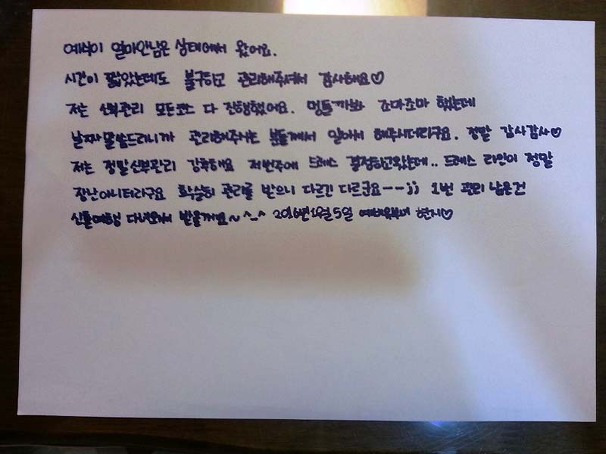 예식이 얼마안남은 상태에서 왔어요.
시간이 짧았는데도 불구하고 관리해주셔서 감사해요♡
저는 신부관리 모든코스 다 진행했어요. 멍들까봐 조마조마 했는데
날짜말씀드리니까 관리해주시는 분들께서 알아서 해주시더라구요. 정말 감사감사♡
저는 정말신부관리 강추해요 저번주에 드레스 결정하고왔는데.. 드레스 라인이 정말
장난아니더라구요 확실히 관리를 받으니 다르긴 다르군요--;; 1번 관리 남은건
신혼여행 다녀와서 받을게요~ ^_^ 2016년1월5일 예비신부 현지♡